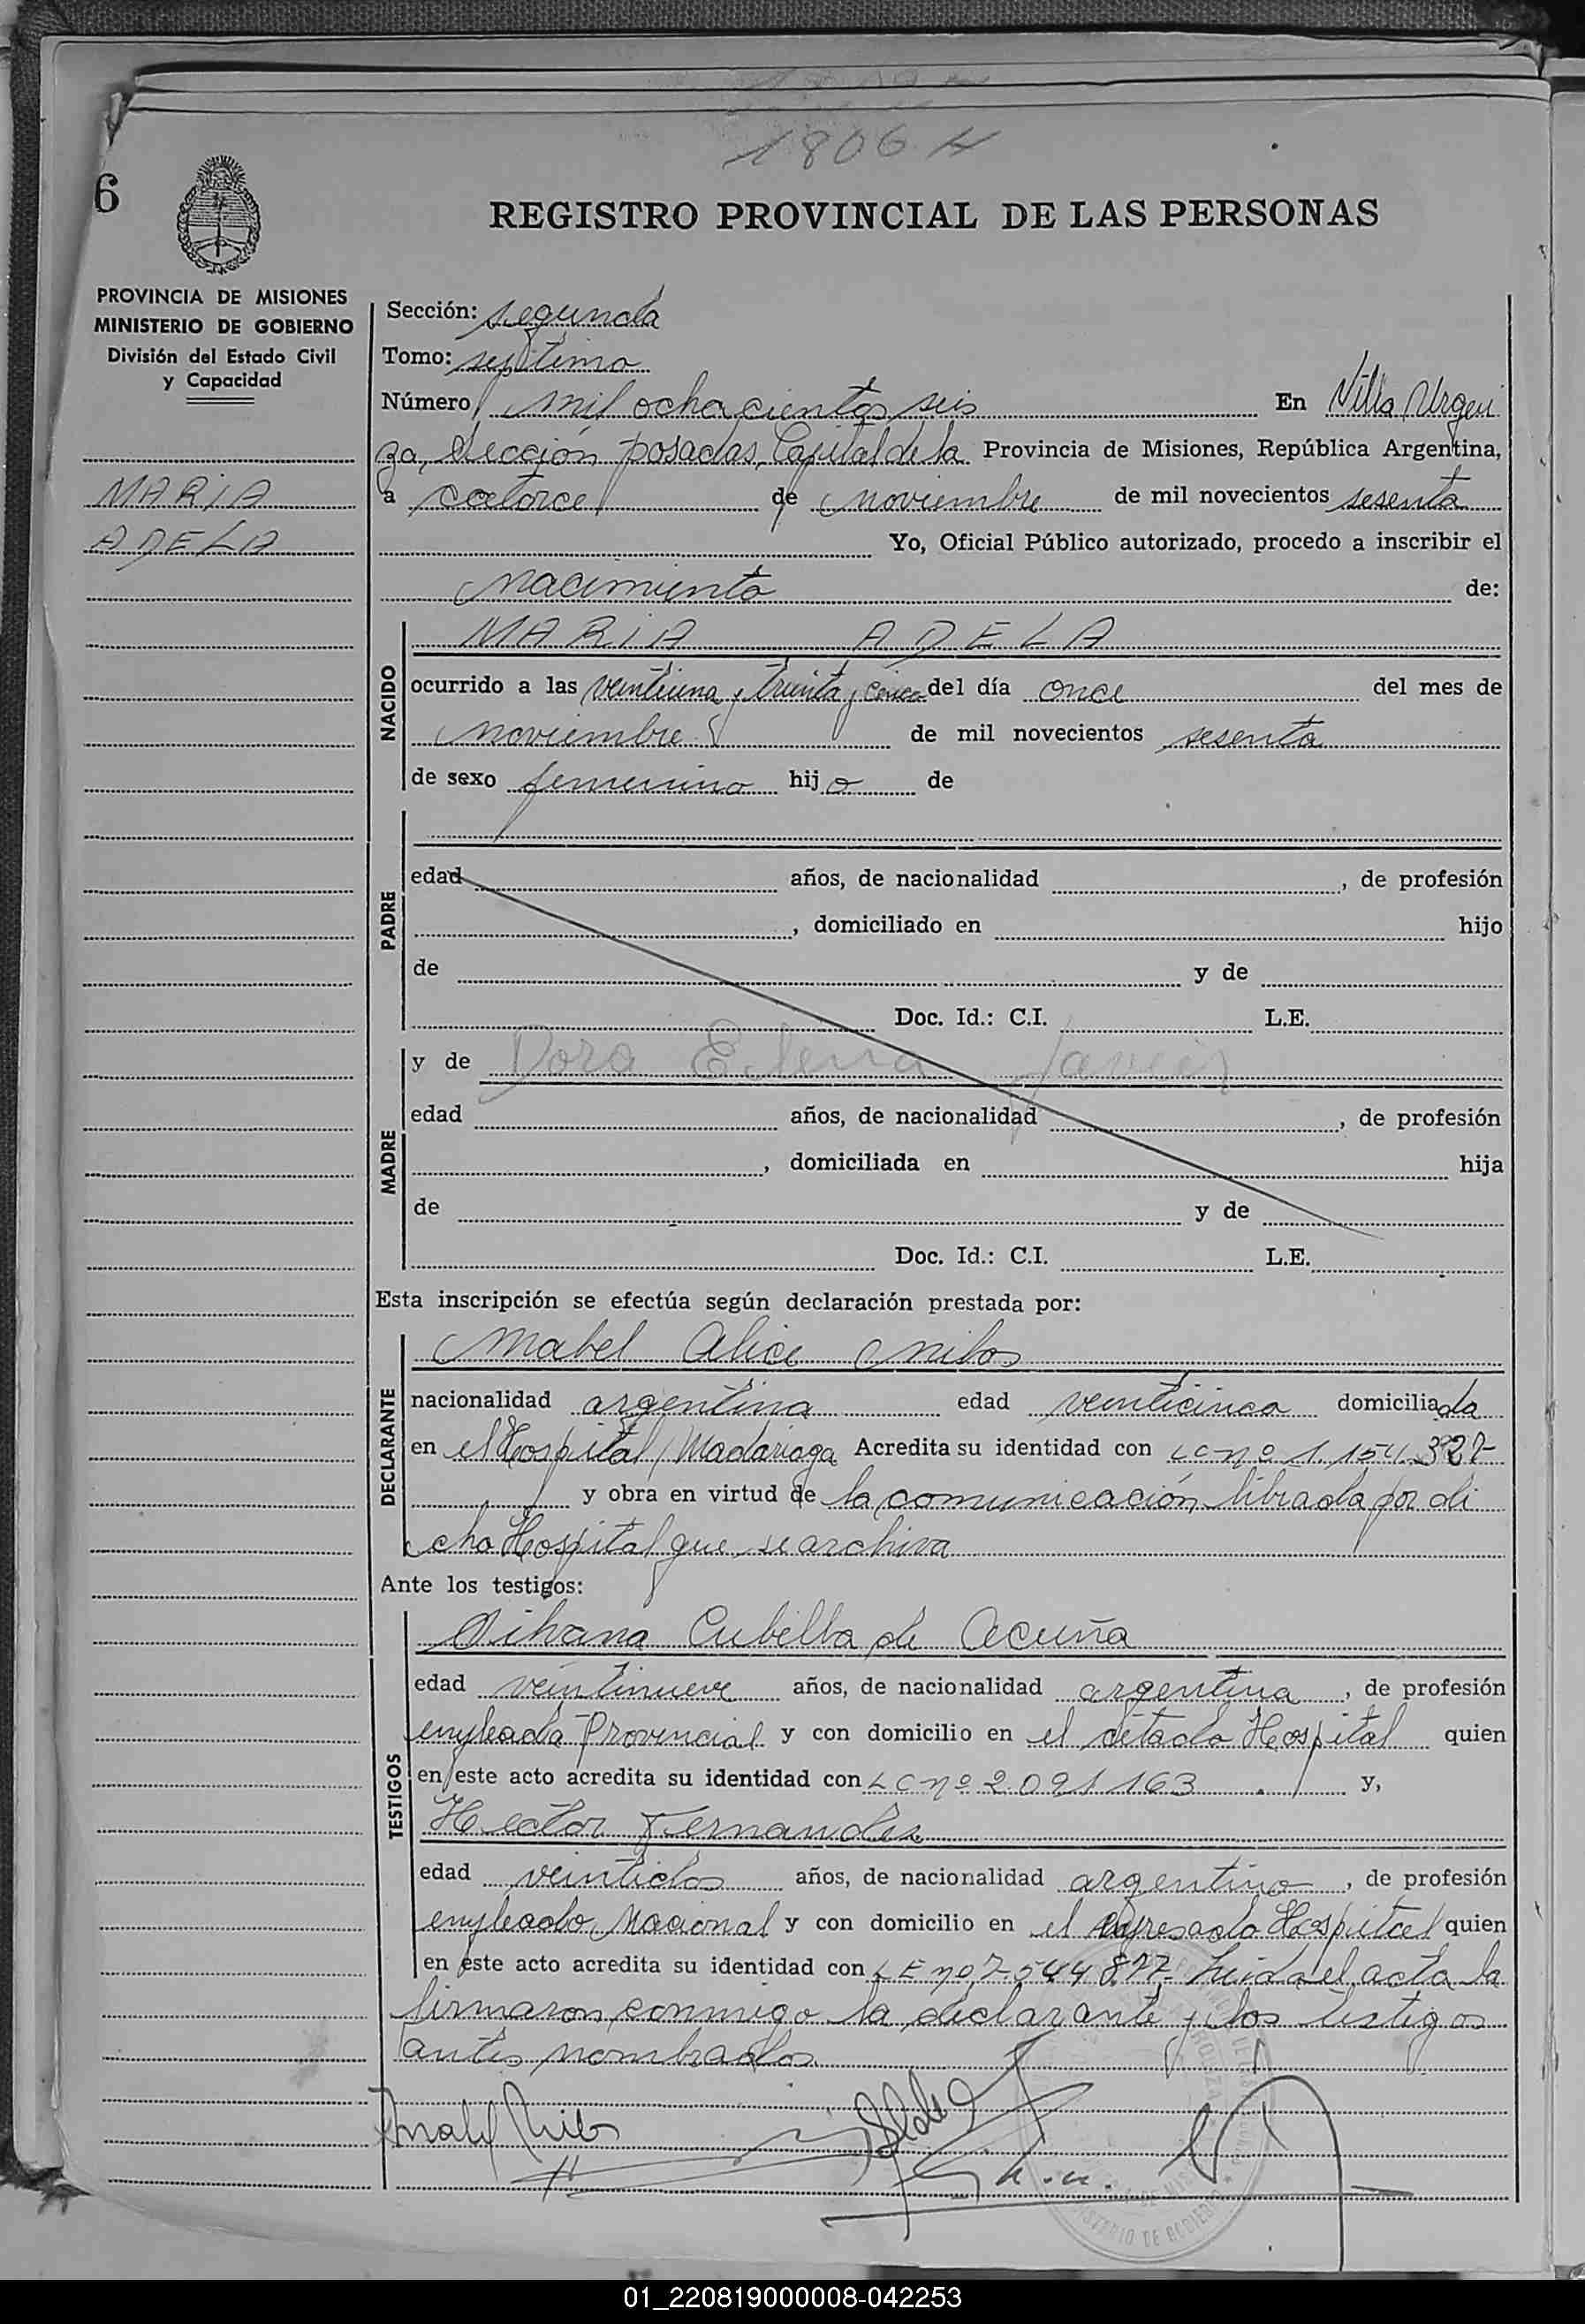 1806 H
6
REGISTRO PROVINCIAL DE LAS PERSONAS
PROVINCIA DE MISIONES
MINISTERIO DE GOBIERNO
División del Estado Civil
y Capacidad
MARIA
ADELA
Sección: segunda
Tomo: septimo
Número mil ochocientos seis En Villa Urqui
za, Sección posadas, Capital de la Provincia de Misiones, República Argentina,
a catorce de noviembre de mil novecientos sesenta
Yo, Oficial Público autorizado, procedo a inscribir el
nacimiento de:
NACIDO
MARIA ADELA
ocurrido a las veintiuna y treinta y cinco del día once del mes de
noviembre de mil novecientos sesenta
de sexo femenino hijo de
PADRE
edad años, de nacionalidad , de profesión
, domiciliado en hijo
de y de
Doc. Id.: C.I. L.E.
MADRE
y de Dora Elena Javier
edad años, de nacionalidad , de profesión
, domiciliada en hija
de y de
Doc. Id.: C.I. L.E.
Esta inscripción se efectúa según declaración prestada por:
DECLARANTE
Mabel Alice
nacionalidad argentina edad veinticinco domiciliada
en el Hospital Madariaga Acredita su identidad con LC nº 1.154.327-
y obra en virtud de la comunicación librada por di
cho Hospital que se archiva
Ante los testigos:
TESTIGOS
Silvana Cubilla de Acuña
edad veintinueve años, de nacionalidad argentina, de profesión
empleada Provincial y con domicilio en el citado Hospital quien
en este acto acredita su identidad con LC nº 2.091.163 y,
Hector Fernandez
edad veintidos años, de nacionalidad argentino, de profesión
empleado Nacional y con domicilio en el expresado Hospital quien
en este acto acredita su identidad con LE nº 7.544.877- Leida el acta la
firmaron conmigo la declarante y los testigos
antes nombrados
MINISTERIO DE GOBIERNO
01_220819000008-042253